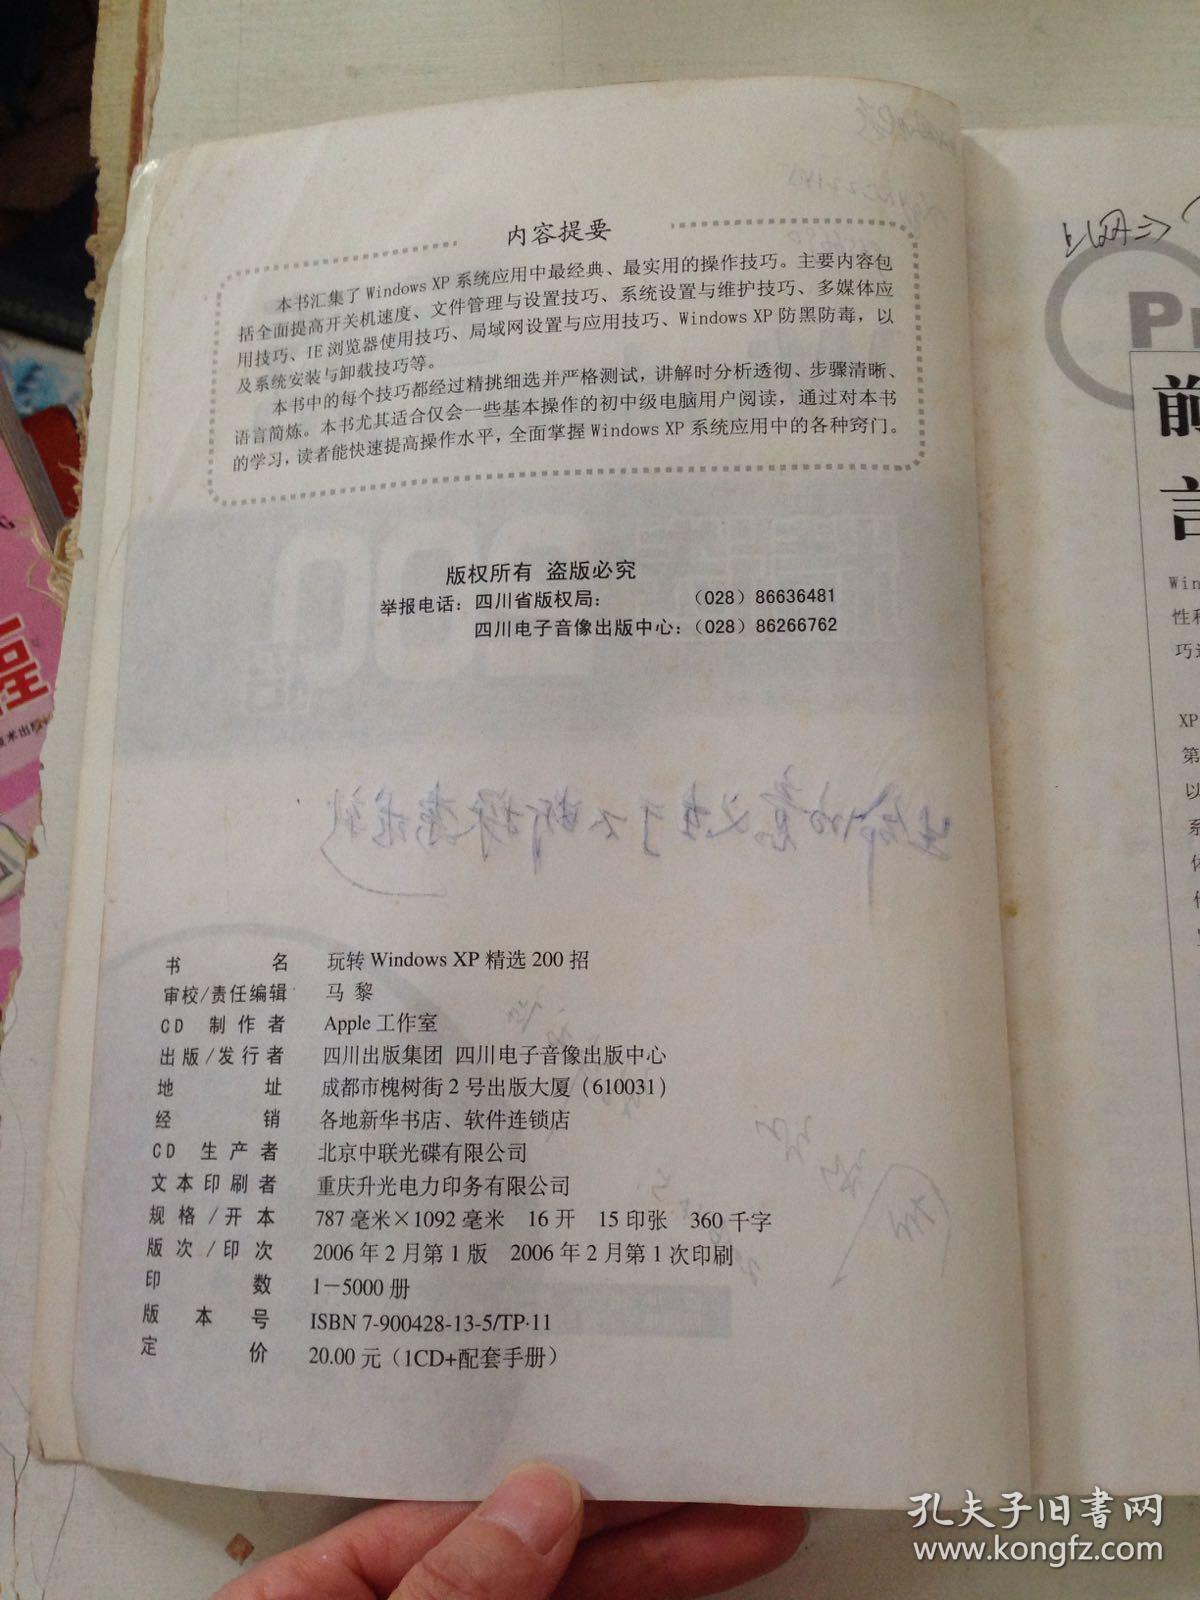 内容提要
本书汇集了 Windows XP 系统应用中最经典、最实用的操作技巧。主要内容包
括全面提高开关机速度、文件管理与设置技巧、系统设置与维护技巧、多媒体应
用技巧、IE 浏览器使用技巧、局域网设置与应用技巧、Windows XP 防黑防毒，以
及系统安装与卸载技巧等。
本书中的每个技巧都经过精挑细选并严格测试，讲解时分析透彻、步骤清晰、
语言简炼。本书尤其适合仅会一些基本操作的初中级电脑用户阅读，通过对本书
的学习，读者能快速提高操作水平，全面掌握 Windows XP 系统应用中的各种窍门。
版权所有 盗版必究
举报电话：四川省版权局： （028）86636481
四川电子音像出版中心：（028）86266762
书名 玩转 Windows XP 精选 200 招
审校/责任编辑 马 黎
CD 制作者 Apple 工作室
出版/发行者 四川出版集团 四川电子音像出版中心
地址 成都市槐树街 2 号出版大厦（610031）
经销 各地新华书店、软件连锁店
CD 生产者 北京中联光碟有限公司
文本印刷者 重庆升光电力印务有限公司
规格/开本 787 毫米×1092 毫米 16 开 15 印张 360 千字
版次/印次 2006 年 2 月第 1 版 2006 年 2 月第 1 次印刷
印数 1－5000 册
版本号 ISBN 7-900428-13-5/TP·11
定价 20.00 元（1CD+配套手册）
前
言
Win
XP
第
以
孔夫子旧书网
www.kongfz.com